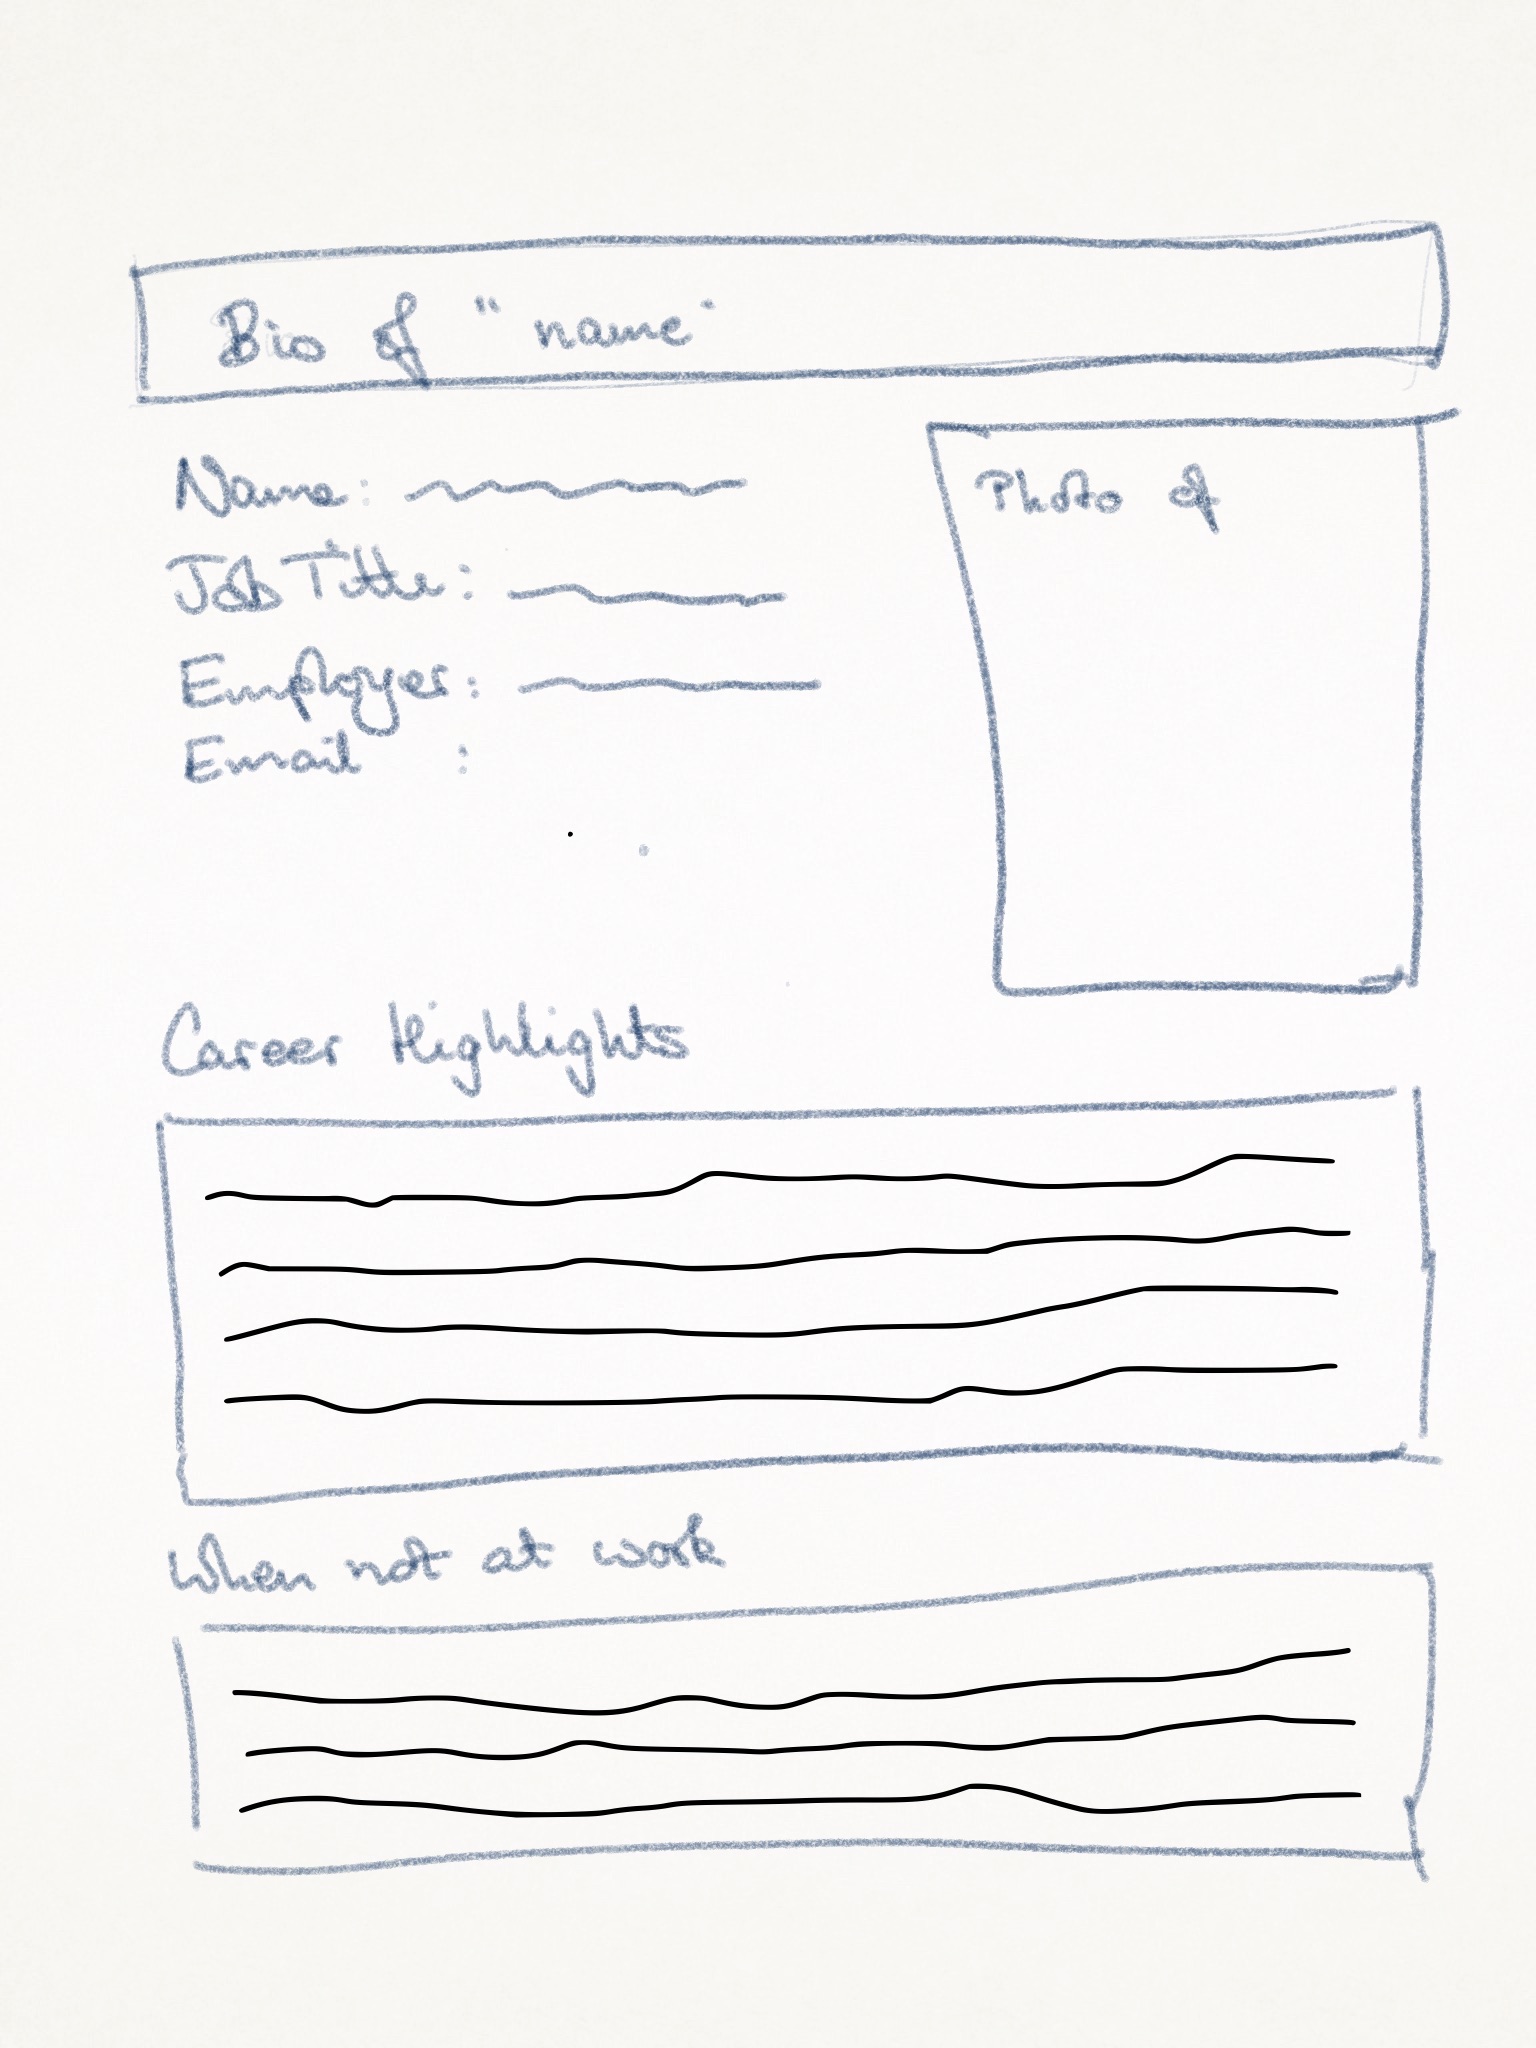 Bio of "name"
Name:
Photo of
Job Title:
Employer:
Email :
Career Highlights
When not at work